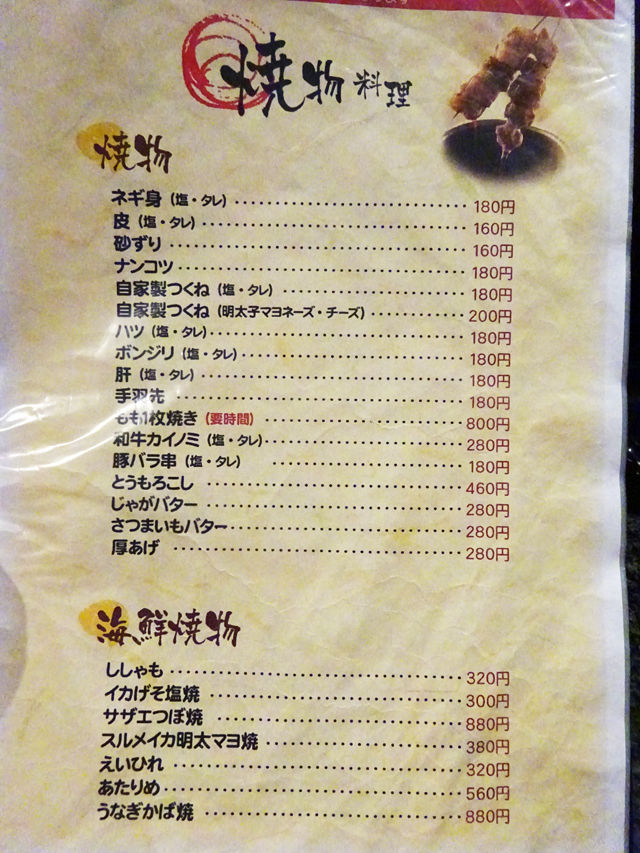 焼物料理
焼物
ネギ身（塩・タレ）‥‥‥‥‥‥‥‥‥‥ 180円
皮（塩・タレ）‥‥‥‥‥‥‥‥‥‥ 160円
砂ずり‥‥‥‥‥‥‥‥‥‥ 160円
ナンコツ‥‥‥‥‥‥‥‥‥‥ 180円
自家製つくね（塩・タレ）‥‥‥‥‥‥‥ 180円
自家製つくね（明太子マヨネーズ・チーズ）‥‥‥ 200円
ハツ（塩・タレ）‥‥‥‥‥‥‥‥‥‥ 180円
ボンジリ（塩・タレ）‥‥‥‥‥‥‥‥‥ 180円
肝（塩・タレ）‥‥‥‥‥‥‥‥‥‥ 180円
手羽先‥‥‥‥‥‥‥‥‥‥ 180円
もも1枚焼き（要時間）‥‥‥‥‥‥‥‥ 800円
和牛カイノミ（塩・タレ）‥‥‥‥‥‥‥ 280円
豚バラ串（塩・タレ）‥‥‥‥‥‥‥ 180円
とうもろこし‥‥‥‥‥‥‥‥‥‥ 460円
じゃがバター‥‥‥‥‥‥‥‥‥‥ 280円
さつまいもバター‥‥‥‥‥‥‥‥‥ 280円
厚あげ‥‥‥‥‥‥‥‥‥‥ 280円
海鮮焼物
ししゃも‥‥‥‥‥‥‥‥‥‥ 320円
イカげそ塩焼‥‥‥‥‥‥‥‥‥‥ 300円
サザエつぼ焼‥‥‥‥‥‥‥‥‥‥ 880円
スルメイカ明太マヨ焼‥‥‥‥‥‥‥‥ 380円
えいひれ‥‥‥‥‥‥‥‥‥‥ 320円
あたりめ‥‥‥‥‥‥‥‥‥‥ 560円
うなぎかば焼‥‥‥‥‥‥‥‥‥‥ 880円